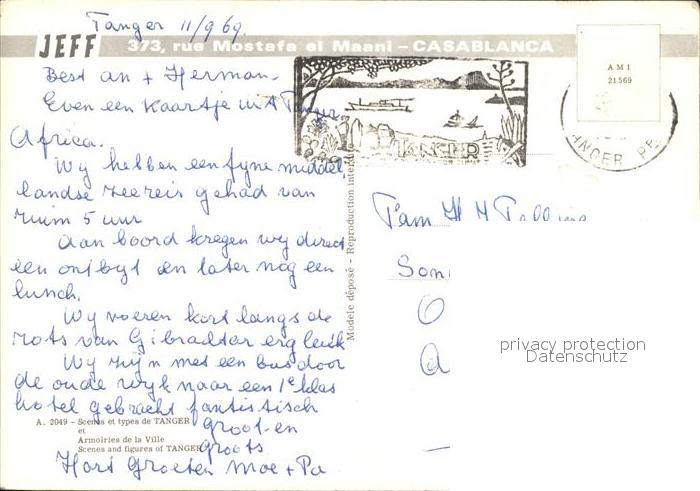 Tanger 11/9 69.
JEFF 373, rue Mostafa el Maani – CASABLANCA
AMI
21569
TANGER
TANGER P.P.
Best an + Herman
Even een kaartje uit Tanger
Africa.
Wy hebben een fyne middel
landse zeereis gehad van
ruim 5 uur
Aan boord kregen wy direct
een ontbyt en later nog een
lunch.
Wy voeren kort langs de
rots van Gibralter erg leuk
Wy zyn met een bus door
de oude wyk naar een 1e klas
hotel gebracht fantistisch
groot en
groots.
Hart Groeten Moe + Pa
A. 2049 - Scènes et types de TANGER
et
Armoiries de la Ville
Scenes and figures of TANGER
Modèle déposé - Reproduction interdite
Fam H M
privacy protection
Datenschutz